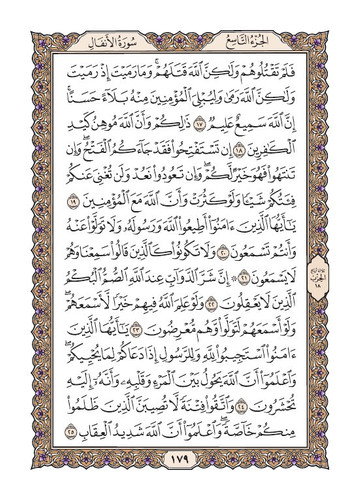 سُورَةُ الأَنفَالِ
الجُزْءُ التَّاسِعُ
فَلَمْ تَقْتُلُوهُمْ وَلَٰكِنَّ ٱللَّهَ قَتَلَهُمْ ۚ وَمَا رَمَيْتَ إِذْ رَمَيْتَ
وَلَٰكِنَّ ٱللَّهَ رَمَىٰ ۚ وَلِيُبْلِىَ ٱلْمُؤْمِنِينَ مِنْهُ بَلَآءً حَسَنًا ۚ
إِنَّ ٱللَّهَ سَمِيعٌ عَلِيمٌ ١٧ ذَٰلِكُمْ وَأَنَّ ٱللَّهَ مُوهِنُ كَيْدِ
ٱلْكَٰفِرِينَ ١٨ إِن تَسْتَفْتِحُوا۟ فَقَدْ جَآءَكُمُ ٱلْفَتْحُ ۖ وَإِن
تَنتَهُوا۟ فَهُوَ خَيْرٌ لَّكُمْ ۖ وَإِن تَعُودُوا۟ نَعُدْ وَلَن تُغْنِىَ عَنكُمْ
فِئَتُكُمْ شَيْـًٔا وَلَوْ كَثُرَتْ وَأَنَّ ٱللَّهَ مَعَ ٱلْمُؤْمِنِينَ ١٩
يَٰٓأَيُّهَا ٱلَّذِينَ ءَامَنُوٓا۟ أَطِيعُوا۟ ٱللَّهَ وَرَسُولَهُۥ وَلَا تَوَلَّوْا۟ عَنْهُ
وَأَنتُمْ تَسْمَعُونَ ٢٠ وَلَا تَكُونُوا۟ كَٱلَّذِينَ قَالُوا۟ سَمِعْنَا وَهُمْ
لَا يَسْمَعُونَ ٢١ ۞ إِنَّ شَرَّ ٱلدَّوَآبِّ عِندَ ٱللَّهِ ٱلصُّمُّ ٱلْبُكْمُ
ٱلَّذِينَ لَا يَعْقِلُونَ ٢٢ وَلَوْ عَلِمَ ٱللَّهُ فِيهِمْ خَيْرًا لَّأَسْمَعَهُمْ ۖ
وَلَوْ أَسْمَعَهُمْ لَتَوَلَّوا۟ وَّهُم مُّعْرِضُونَ ٢٣ يَٰٓأَيُّهَا ٱلَّذِينَ
ءَامَنُوا۟ ٱسْتَجِيبُوا۟ لِلَّهِ وَلِلرَّسُولِ إِذَا دَعَاكُمْ لِمَا يُحْيِيكُمْ ۖ
وَٱعْلَمُوٓا۟ أَنَّ ٱللَّهَ يَحُولُ بَيْنَ ٱلْمَرْءِ وَقَلْبِهِۦ وَأَنَّهُۥٓ إِلَيْهِ
تُحْشَرُونَ ٢٤ وَٱتَّقُوا۟ فِتْنَةً لَّا تُصِيبَنَّ ٱلَّذِينَ ظَلَمُوا۟
مِنكُمْ خَآصَّةً ۖ وَٱعْلَمُوٓا۟ أَنَّ ٱللَّهَ شَدِيدُ ٱلْعِقَابِ ٢٥
الحِزْب
١٨
١٧٩